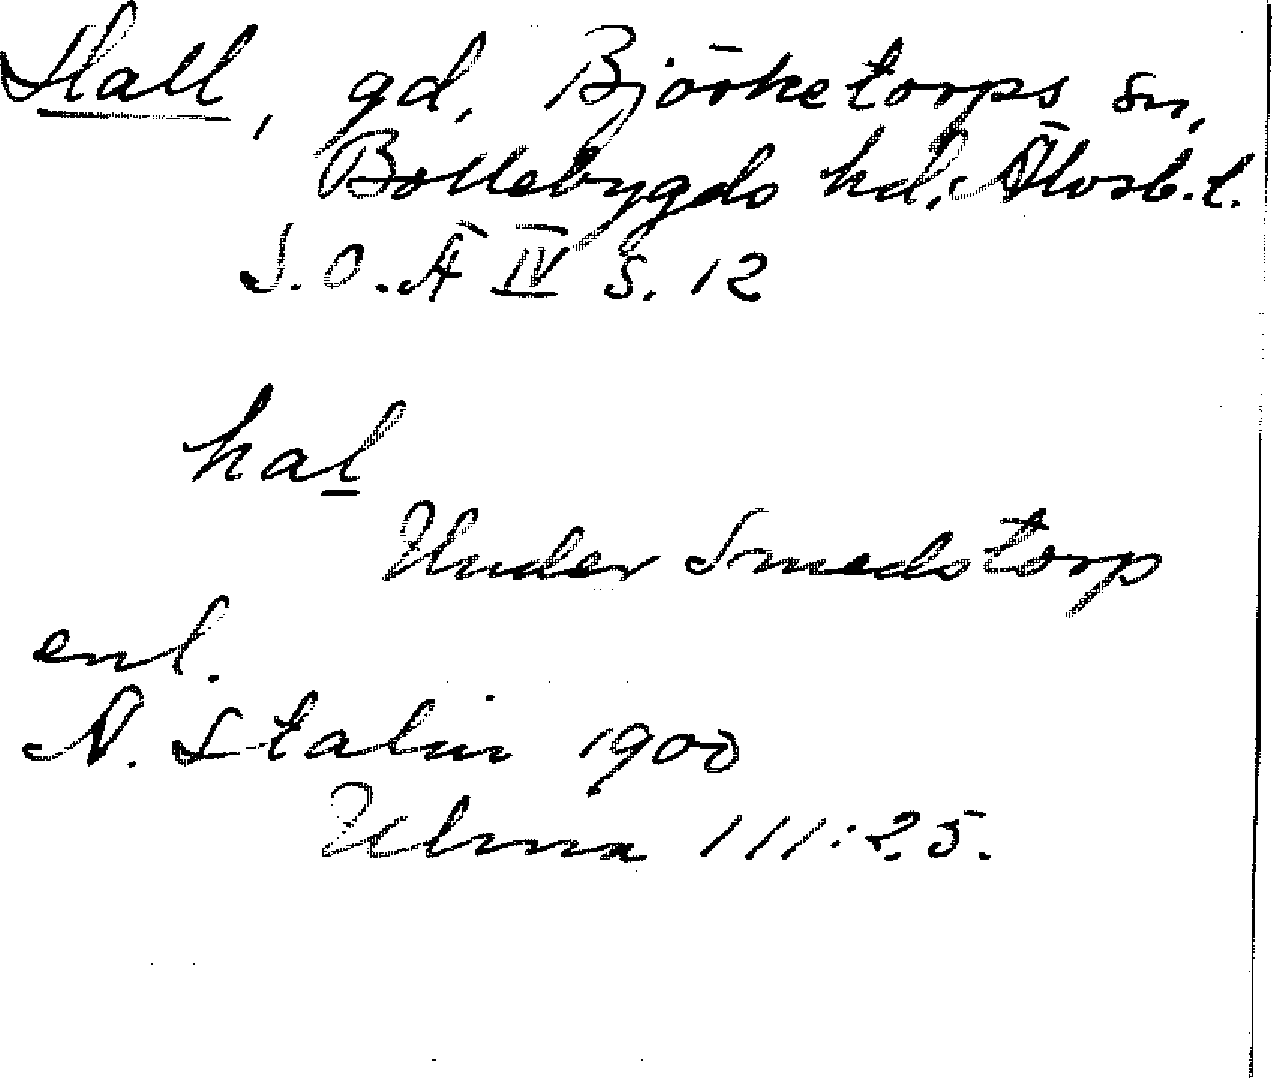 Hall, gd, Björketorps sn,
Bollebygds hd, Älvsb. l.
S.O.Ä IV s. 12
hal
Under Smedstorp
enl.
A. Stalin 1900
Ulma 111:25.